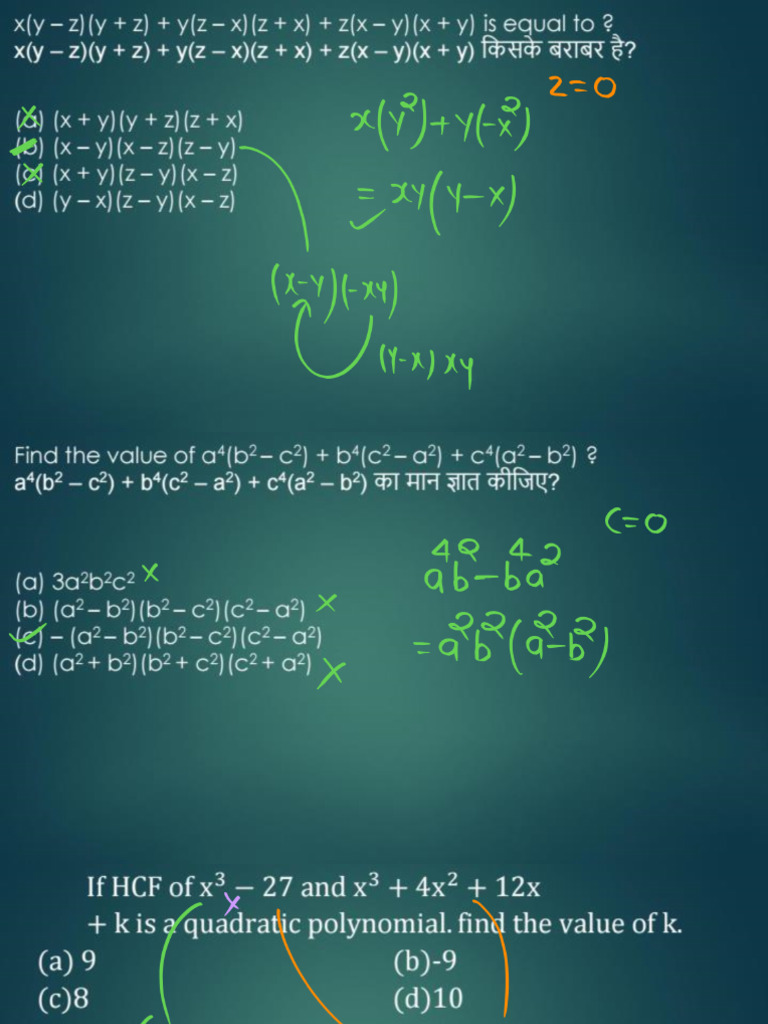 x(y – z)(y + z) + y(z – x)(z + x) + z(x – y)(x + y) is equal to ?
x(y – z)(y + z) + y(z – x)(z + x) + z(x – y)(x + y) किसके बराबर है?
z=0
(a) (x + y)(y + z)(z + x)
(b) (x – y)(x – z)(z – y)
(c) (x + y)(z – y)(x – z)
(d) (y – x)(z – y)(x – z)
x(y²)+y(-x²)
= xy(y-x)
(x-y)(-xy)
(y-x) xy
Find the value of a⁴(b² – c²) + b⁴(c² – a²) + c⁴(a² – b²) ?
a⁴(b² – c²) + b⁴(c² – a²) + c⁴(a² – b²) का मान ज्ञात कीजिए?
c=0
(a) 3a²b²c² x
(b) (a² – b²)(b² – c²)(c² – a²) x
(c) – (a² – b²)(b² – c²)(c² – a²)
(d) (a² + b²)(b² + c²)(c² + a²) x
a⁴b²-b⁴a²
= a²b²(a²-b²)
If HCF of x³ – 27 and x³ + 4x² + 12x
x
+ k is a quadratic polynomial. find the value of k.
(a) 9 (b)-9
(c)8 (d)10